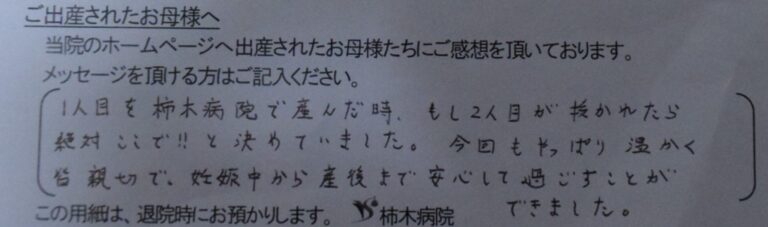 ご出産されたお母様へ
当院のホームページへ出産されたお母様たちにご感想を頂いております。
メッセージを頂ける方はご記入ください。
1人目を柿木病院で産んだ時、もし2人目が授かれたら
絶対ここで!!と決めていました。今回もやっぱり温かく
皆親切で、妊娠中から産後まで安心して過ごすことが
できました。
この用紙は、退院時にお預かりします。 柿木病院